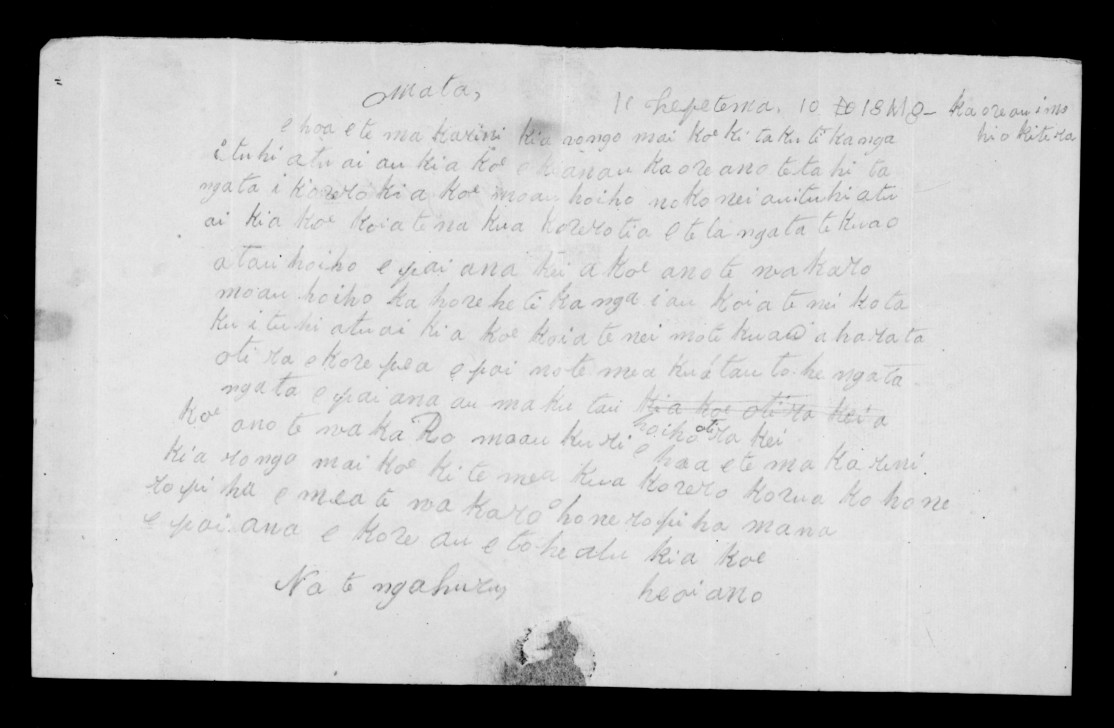 Mata,
Hepetema. 10 18 kaore au i mo
hio ki te ra
e hoa e te ma karini kia rongo mai koe ki taku te kanga
i tuhi atu ai au kia koe kaore ano te tahi ta
ngata i korero kia koe moau hoiho no konei au i tuhi atu
ai kia koe koia te na kua korerotia e te la ngata te kuao
a tau hoiho e pai ana kei a koe ano te wakaro
moau hoiho ka hore he ti kanga i au koia te nei ko ta
ku i tuhi atu ai ki a koe koia te nei mo te kuao aharata
oti ra e kore pea e pai no te mea ku a tau to he ngata
ngata e pai ana au maku tau kia koe oti ra kei a
hoiho oti ra kei
koe ano te waka Ro moau kuri e hoa e te ma karini.
kia rongo mai koe ki te mea kua korero korua ko hone
ropiha e mea te wakaro hone ropiha mana
e pai ana e kore au e tohe atu kia koe
Na te ngahuru heoi ano